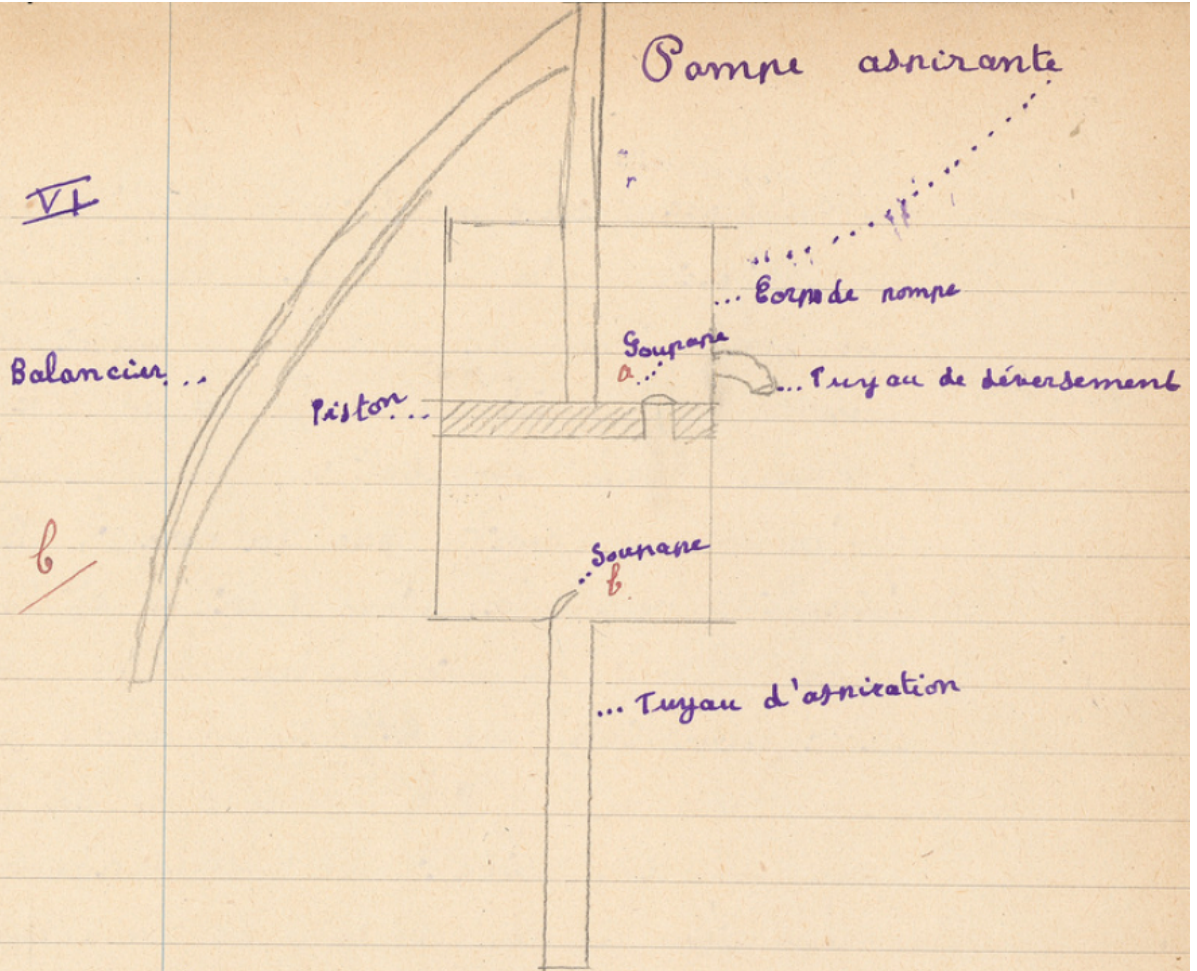 Pompe aspirante
VI
... Corps de pompe
Soupape
a...
Balancier...
... Tuyau de déversement
Piston...
b
Soupape
b
... Tuyau d'aspiration